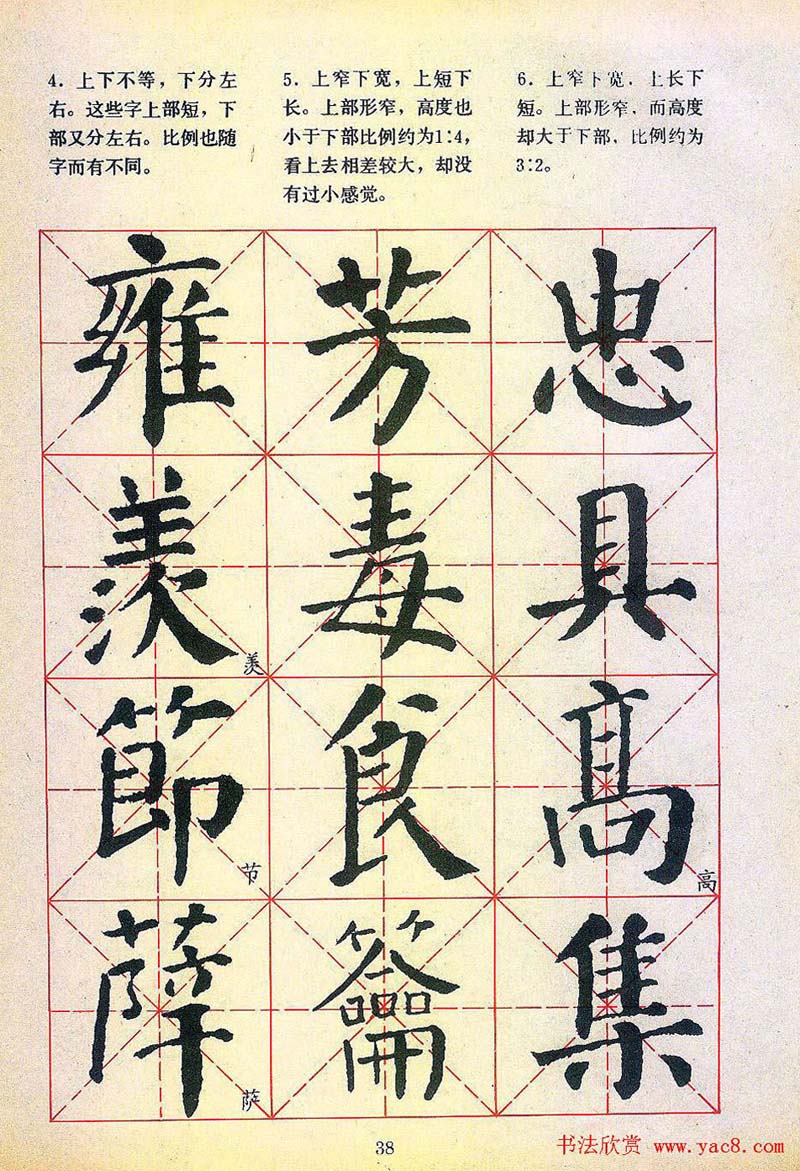 4. 上下不等，下分左
右。这些字上部短，下
部又分左右。比例也随
字而有不同。
5. 上窄下宽，上短下
长。上部形窄，高度也
小于下部比例约为1:4，
看上去相差较大，却没
有过小感觉。
6. 上窄下宽，上长下
短。上部形窄，而高度
却大于下部，比例约为
3:2。
雍 芳 忠
羡 毒 具
羡
節 食 高
节 高
薩 籥 集
萨
38
书法欣赏 www.yac8.com